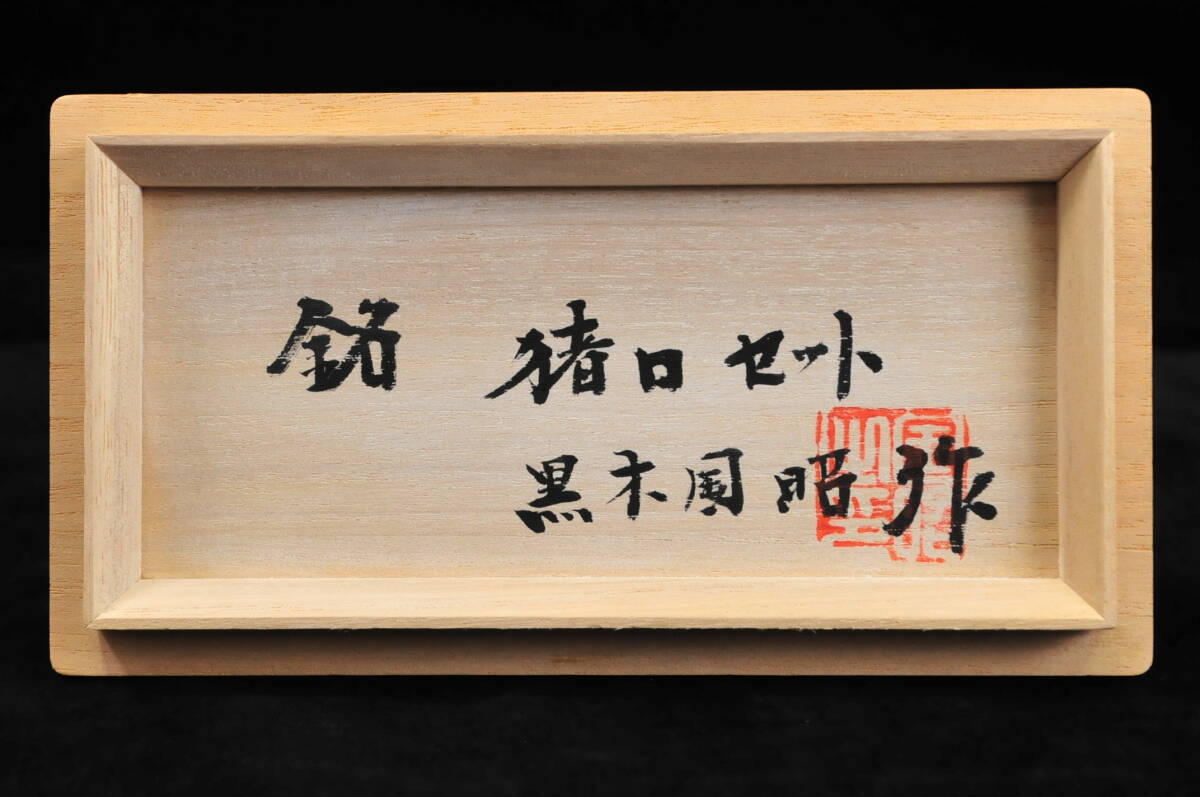 銘 猪口セット
黒木国昭 作